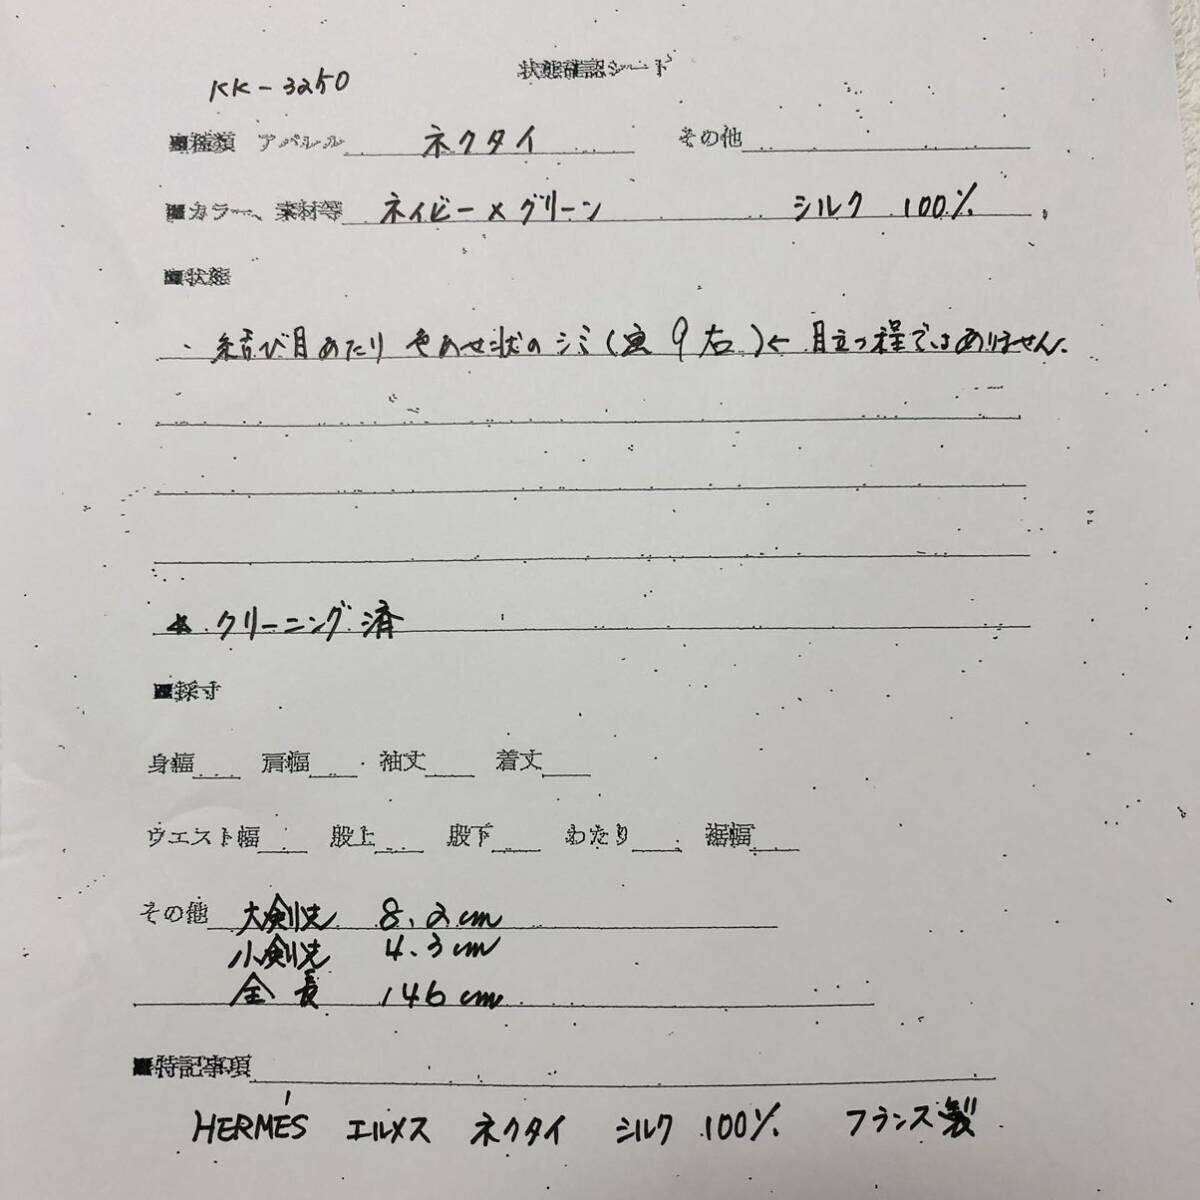 KK-3250
状態確認シート
■種類 アパレル ネクタイ その他
■カラー、素材等 ネイビー×グリーン シルク 100%
■状態
・結び目あたり 色あせ状のシミ(写 9 右)← 目立つ程ではありません。
クリーニング済
■採寸
身幅 肩幅 袖丈 着丈
ウエスト幅 股上 股下 わたり 裾幅
その他 大剣先 8.2cm
小剣先 4.3cm
全長 146cm
■特記事項
HERMÉS エルメス ネクタイ シルク 100% フランス製